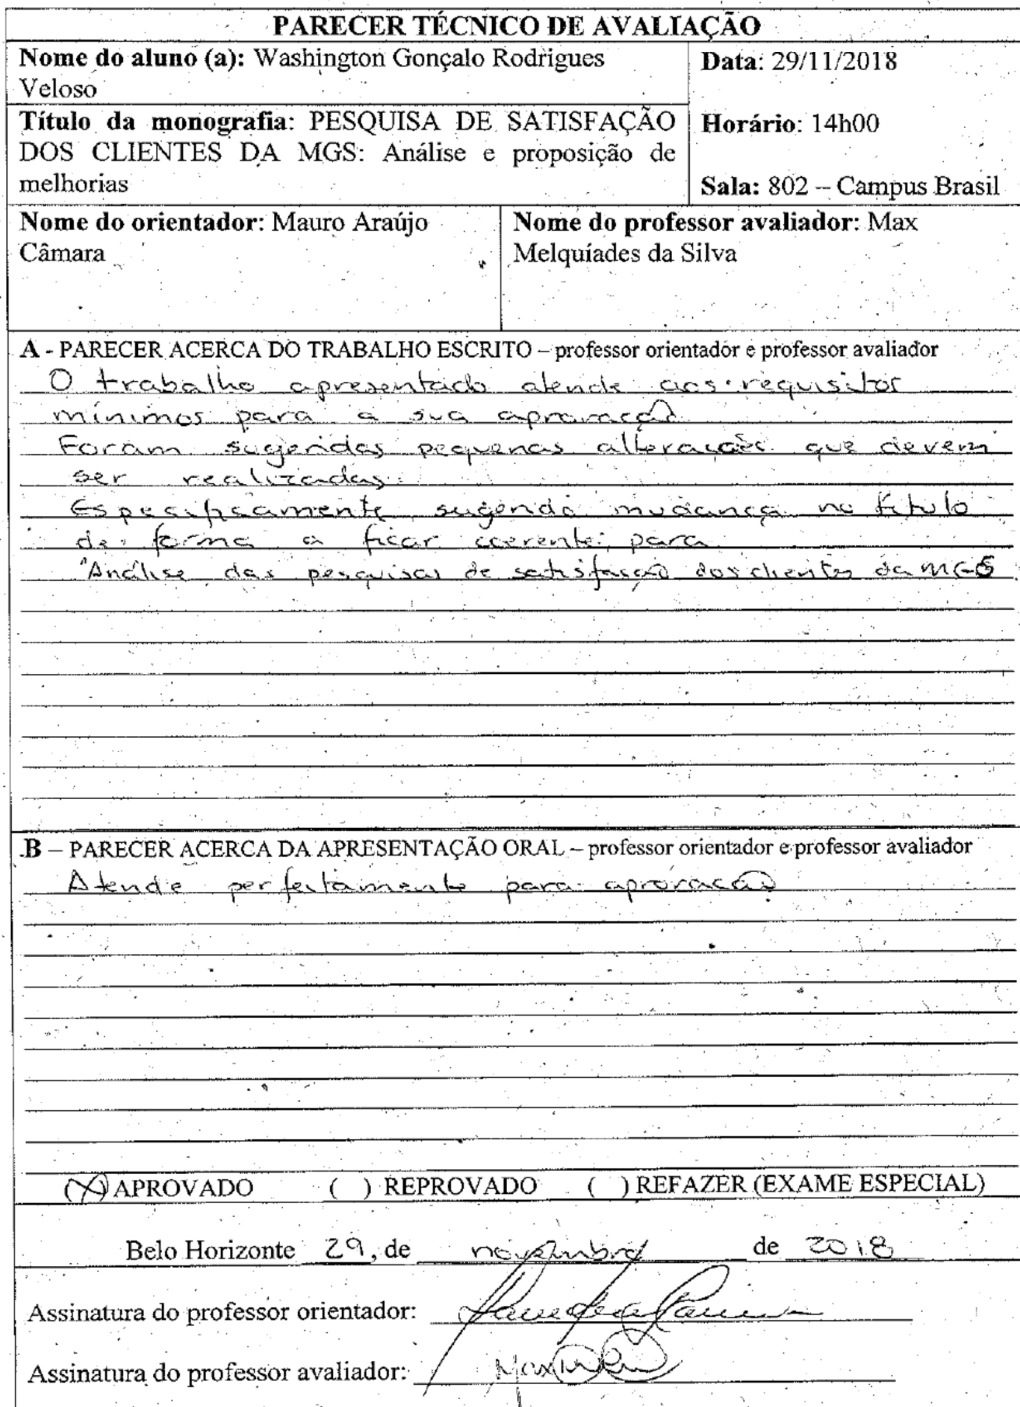 PARECER TÉCNICO DE AVALIAÇÃO
Nome do aluno (a): Washington Gonçalo Rodrigues
Veloso
Data: 29/11/2018
Título da monografia: PESQUISA DE SATISFAÇÃO
DOS CLIENTES DA MGS: Análise e proposição de
melhorias
Horário: 14h00
Sala: 802 – Campus Brasil
Nome do orientador: Mauro Araújo
Câmara
Nome do professor avaliador: Max
Melquíades da Silva
A - PARECER ACERCA DO TRABALHO ESCRITO – professor orientador e professor avaliador
O trabalho apresentado atende aos requisitos
mínimos para a sua aprovação
Foram sugeridas pequenas alterações que devem
ser realizadas.
Especificamente, sugerido mudança no título
de forma a ficar coerente, para
"Análise das pesquisas de satisfação dos clientes da MGS
B – PARECER ACERCA DA APRESENTAÇÃO ORAL – professor orientador e professor avaliador
Atende perfeitamente para aprovação
(X) APROVADO ( ) REPROVADO ( ) REFAZER (EXAME ESPECIAL)
Belo Horizonte 29, de novembro de 2018
Assinatura do professor orientador:
Assinatura do professor avaliador: Max